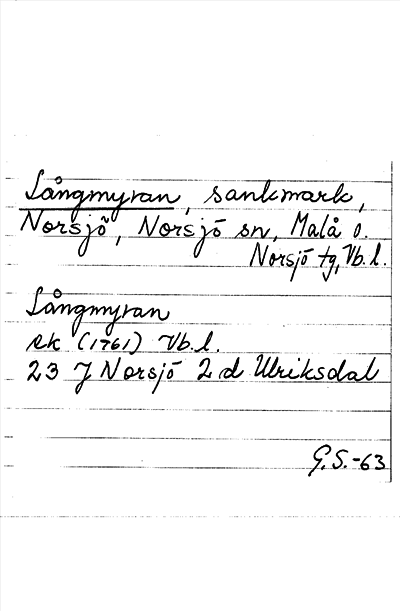 Långmyran, sankmark,
Norsjö, Norsjö sn, Malå o.
Norsjö tg, Vb. l.
Långmyran
ek (1961) Vb. l.
23 J Norsjö 2 d Ulriksdal
G.S.-63